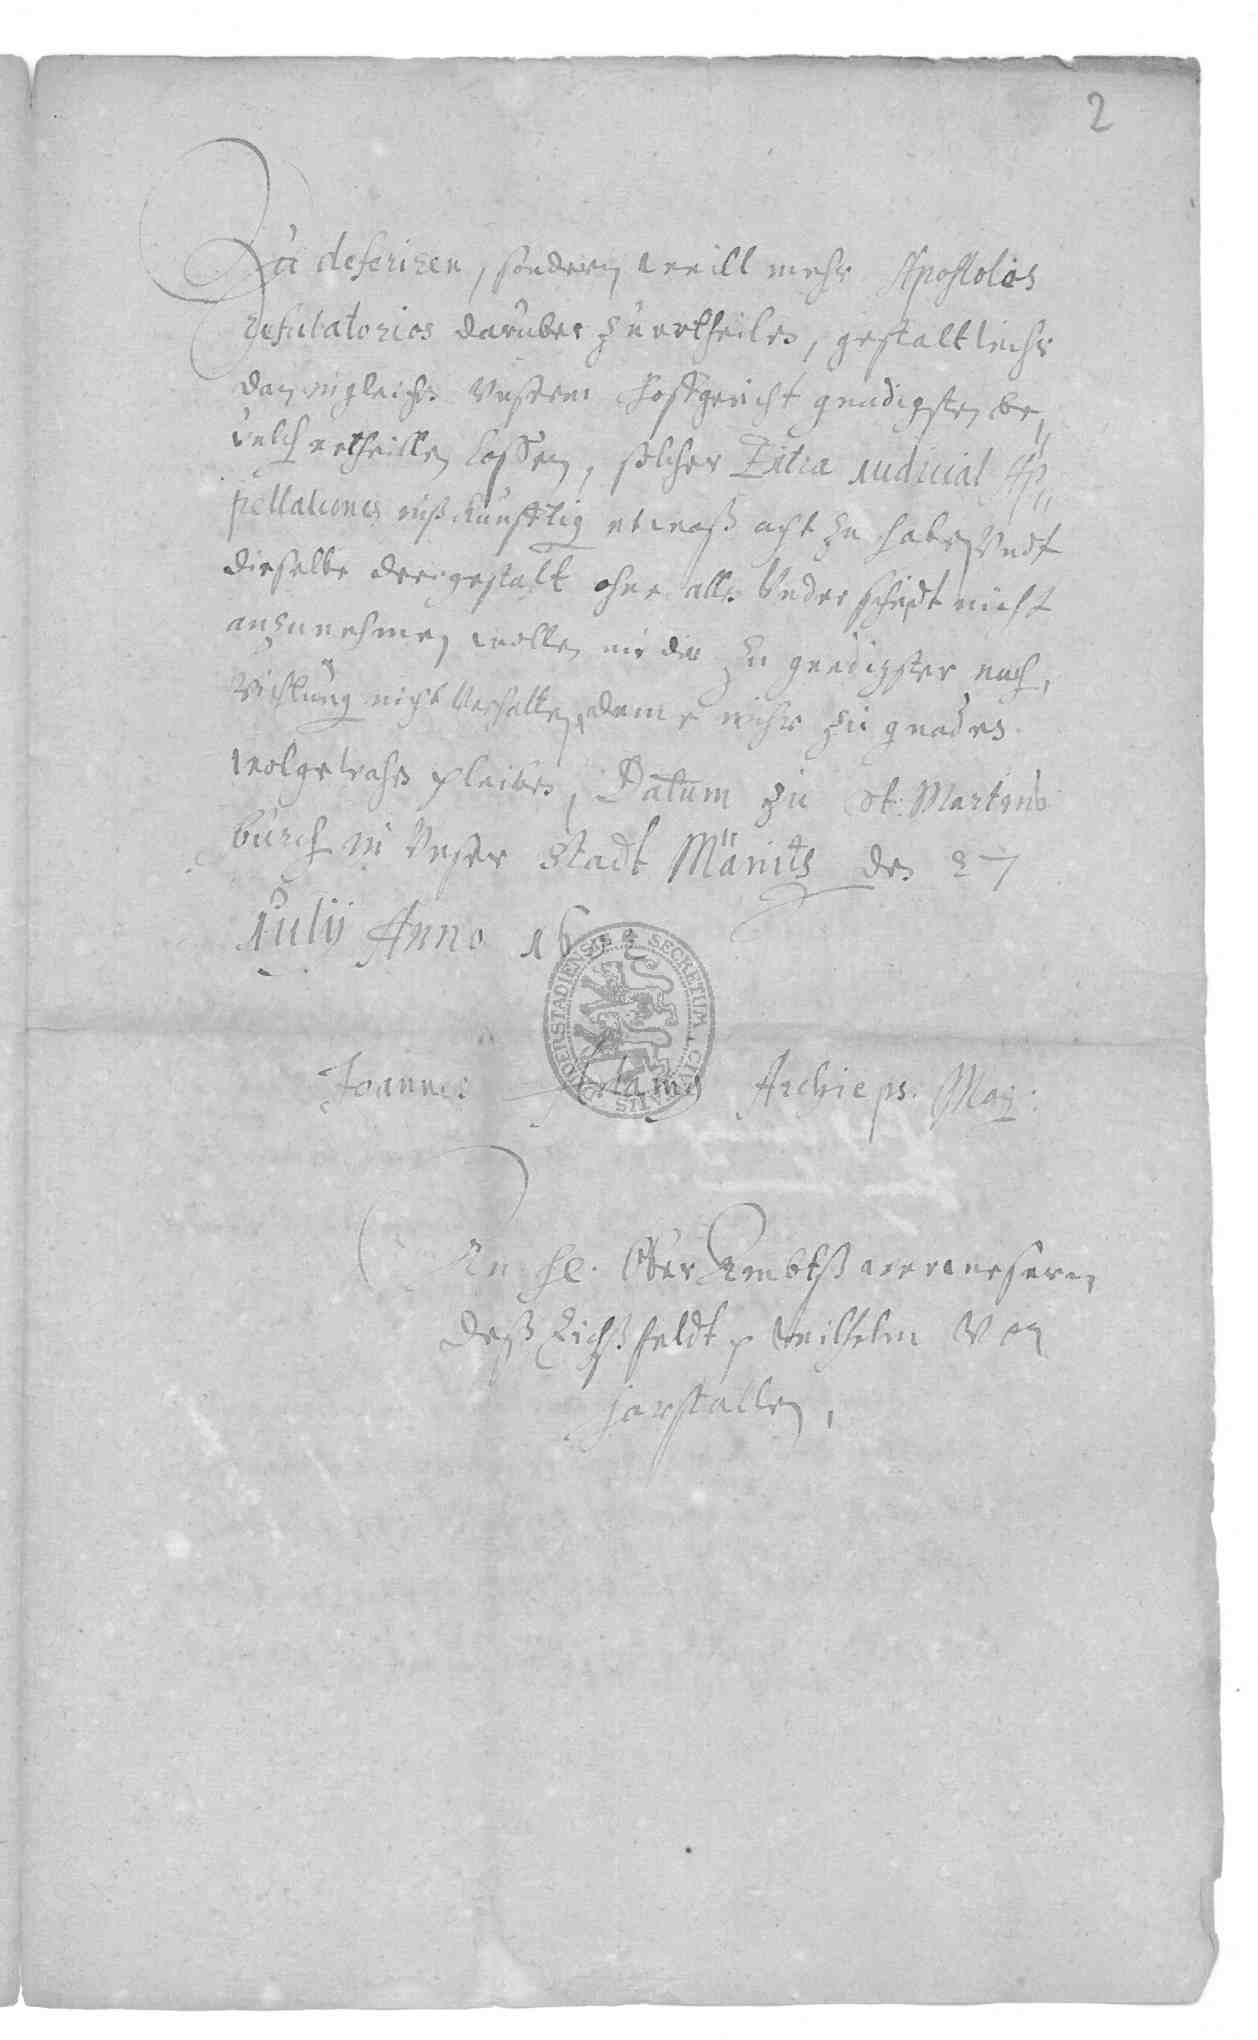 2
Zu deferiren, sondern vill mehr Apostolos
refutatorios daruber zu ertheilen, gestalt wihr
dan ingleichen Unserm Hoffgericht gnedigsten be„
velch ertheillen lassen, solcher Extra iudicial Ap„
pellationes inß künfftig etwaß acht zu haben Undt
dieselbe dergestalt ohne alle Underscheidt nicht
anzunehmen, wollen wir dir zu gnedigster nach,
richtung nicht verhalten, deme wihr zu gnaden
wolgewahn pleiben, Datum zu St: Martins
burch in Unser Stadt Mäintz den 27
Julij Anno 160
SECRETUM CIVITATIS DUDERSTADIENSIS
Joannes Adamus Archieps. Mog:
An H. Ober Ambtß verwesern
deß Eichßfeldt Wilhelm Von
Harstallen,